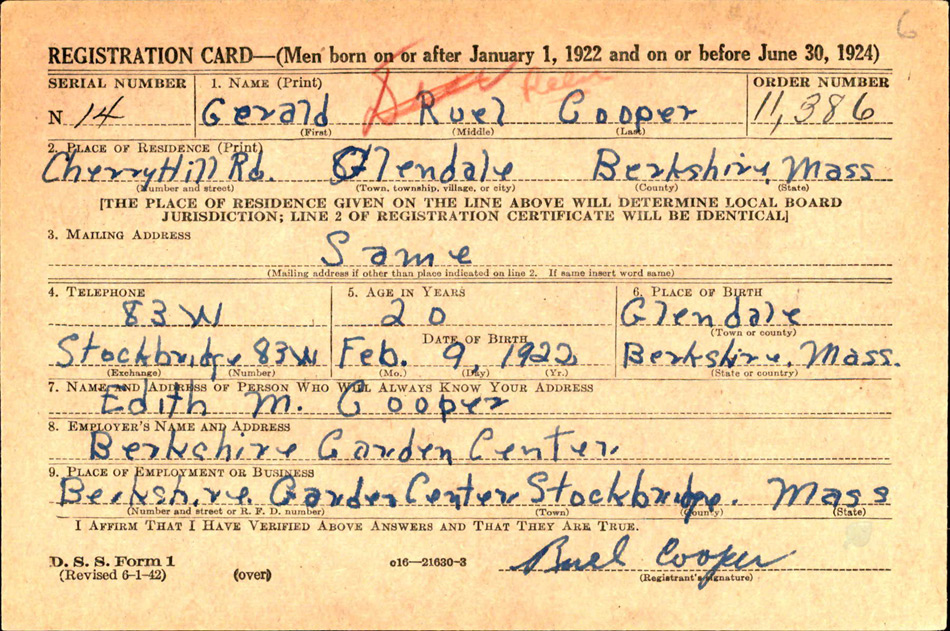 6
REGISTRATION CARD—(Men born on or after January 1, 1922 and on or before June 30, 1924)
SERIAL NUMBER 1. NAME (Print) ORDER NUMBER
N 14 Gerald Ruel Cooper 11,386
(First) (Middle) (Last)
2. PLACE OF RESIDENCE (Print)
Cherry Hill Rd. Glendale Berkshire, Mass
(Number and street) (Town, township, village, or city) (County) (State)
[THE PLACE OF RESIDENCE GIVEN ON THE LINE ABOVE WILL DETERMINE LOCAL BOARD
JURISDICTION; LINE 2 OF REGISTRATION CERTIFICATE WILL BE IDENTICAL]
3. MAILING ADDRESS
Same
(Mailing address if other than place indicated on line 2. If same insert word same)
4. TELEPHONE 5. AGE IN YEARS 6. PLACE OF BIRTH
83 W 20 Glendale
DATE OF BIRTH (Town or county)
Stockbridge 83W Feb. 9, 1922 Berkshire, Mass.
(Exchange) (Number) (Mo.) (Day) (Yr.) (State or country)
7. NAME AND ADDRESS OF PERSON WHO WILL ALWAYS KNOW YOUR ADDRESS
Edith M. Cooper
8. EMPLOYER'S NAME AND ADDRESS
Berkshire Garden Center
9. PLACE OF EMPLOYMENT OR BUSINESS
Berkshire Garden Center Stockbridge. Mass
(Number and street or R. F. D. number) (Town) (County) (State)
I AFFIRM THAT I HAVE VERIFIED ABOVE ANSWERS AND THAT THEY ARE TRUE.
D. S. S. Form 1
(Revised 6-1-42) (over) c16—21630-3 Cooper
(Registrant's signature)